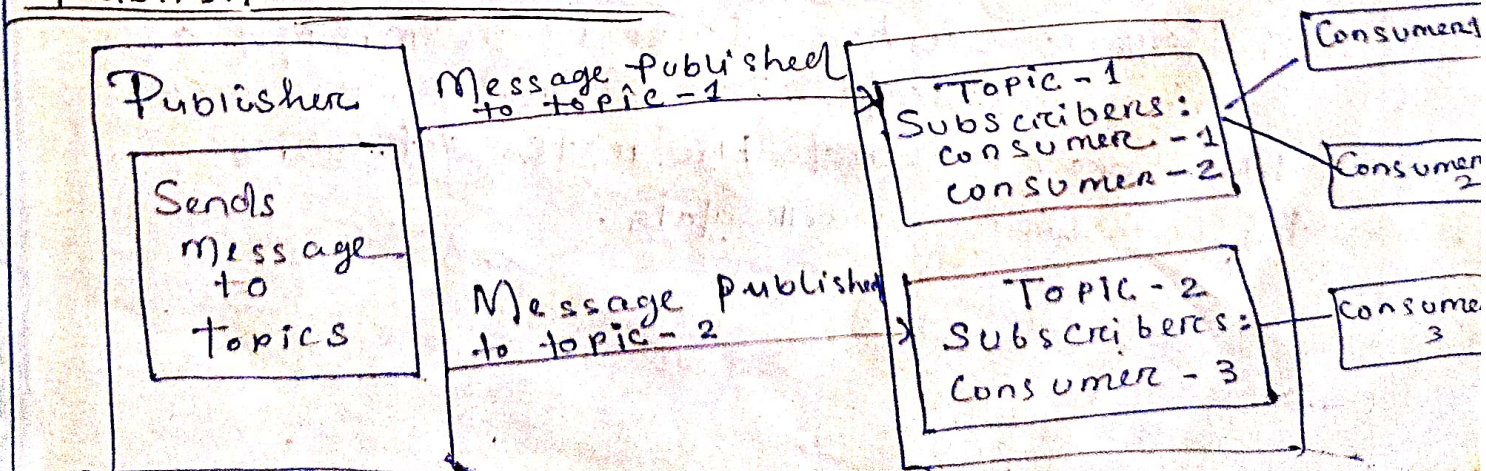 Publisher
Sends
message
to
topics
Message Published
to topic-1
Message Published
to topic-2
Topic-1
Subscribers:
consumer-1
consumer-2
Topic-2
Subscribers:
Consumer-3
Consumer1
Consumer
2
Consume
3